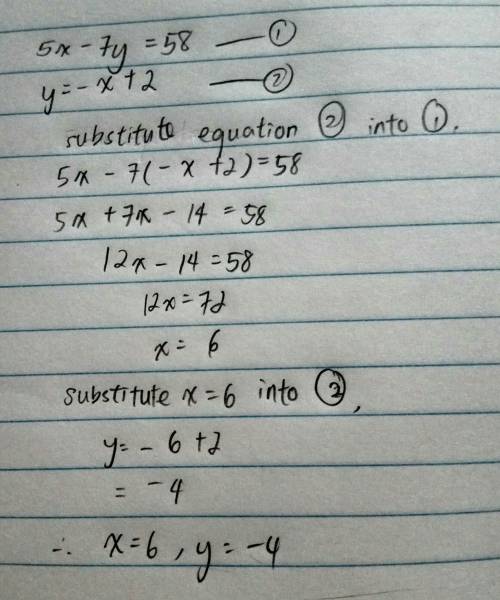 5x - 7y = 58 —— ①
y = - x + 2 —— ②
substitute equation ② into ①.
5x - 7(- x + 2) = 58
5x + 7x - 14 = 58
12x - 14 = 58
12x = 72
x = 6
substitute x = 6 into ②,
y = - 6 + 2
= - 4
∴ x = 6 , y = - 4